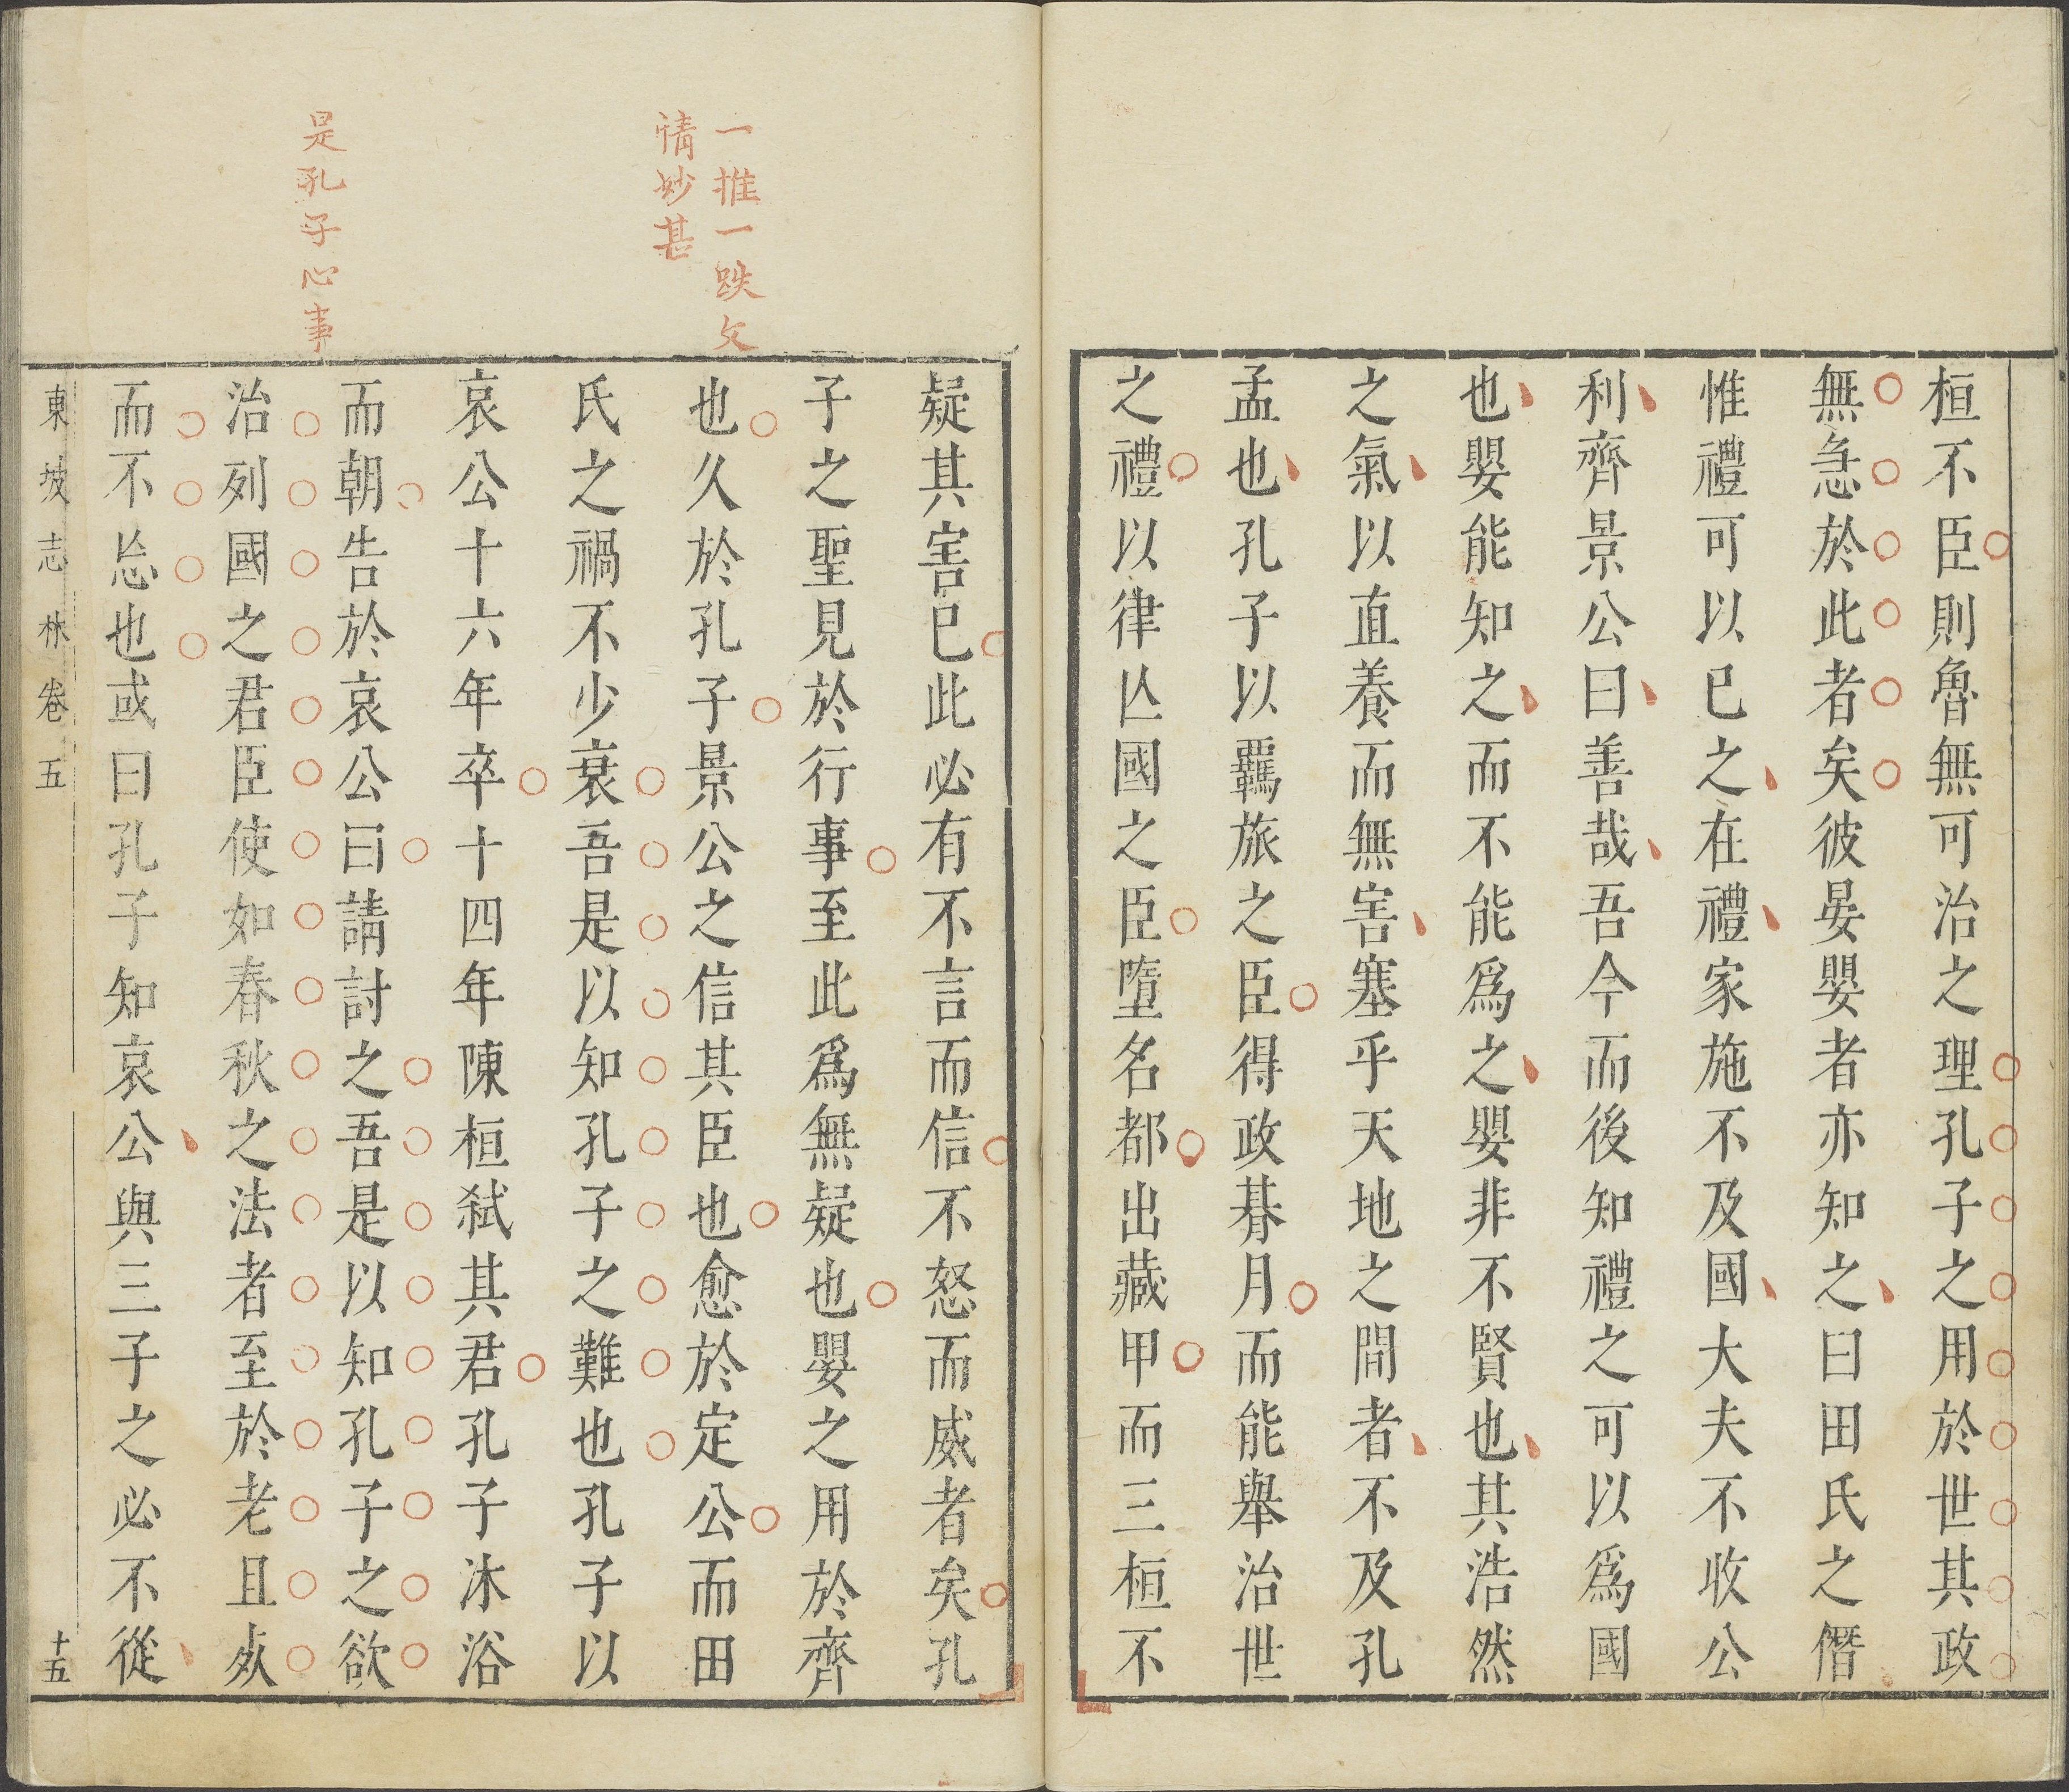 桓不臣則魯無可治之理孔子之用於世其政
無急於此者矣彼晏嬰者亦知之曰田氏之僭
惟禮可以已之在禮家施不及國大夫不收公
利齊景公曰善哉吾今而後知禮之可以爲國
也嬰能知之而不能爲之嬰非不賢也其浩然
之氣以直養而無害塞乎天地之間者不及孔
孟也孔子以羈旅之臣得政朞月而能舉治世
之禮以律亾國之臣墮名都出藏甲而三桓不
一推一跌文
情妙甚
是孔子心事
疑其害已此必有不言而信不怒而威者矣孔
子之聖見於行事至此爲無疑也嬰之用於齊
也久於孔子景公之信其臣也愈於定公而田
氏之禍不少衰吾是以知孔子之難也孔子以
哀公十六年卒十四年陳桓弑其君孔子沐浴
而朝告於哀公曰請討之吾是以知孔子之欲
治列國之君臣使如春秋之法者至於老且死
而不忘也或曰孔子知哀公與三子之必不從
東坡志林卷五
十五